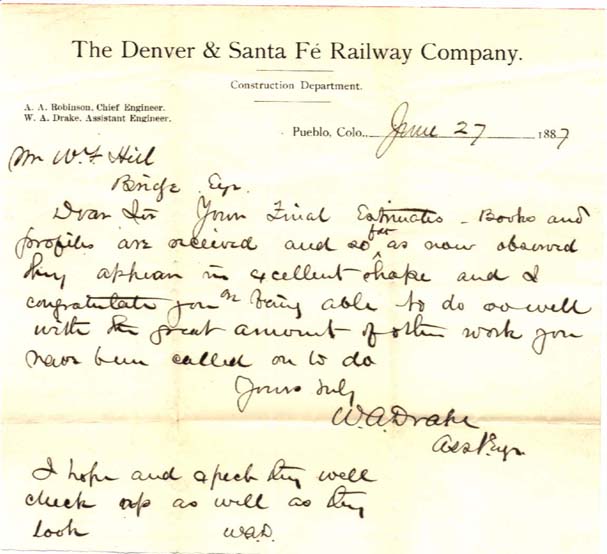 The Denver & Santa Fé Railway Company.
Construction Department.
A. A. Robinson, Chief Engineer.
W. A. Drake, Assistant Engineer.
Pueblo, Colo., June 27 1887
Mr W. F Hill
Bridge Egr.
Dear Sir Your Final Estimates - Books and
profiles are received and so far as now observed
they appear in excellent shape and I
congratulate you on being able to do so well
with the great amount of other work you
have been called on to do
Yours truly
W.A. Drake
Asst Egr
I hope and expect they will
check up as well as they
look W.A.D.